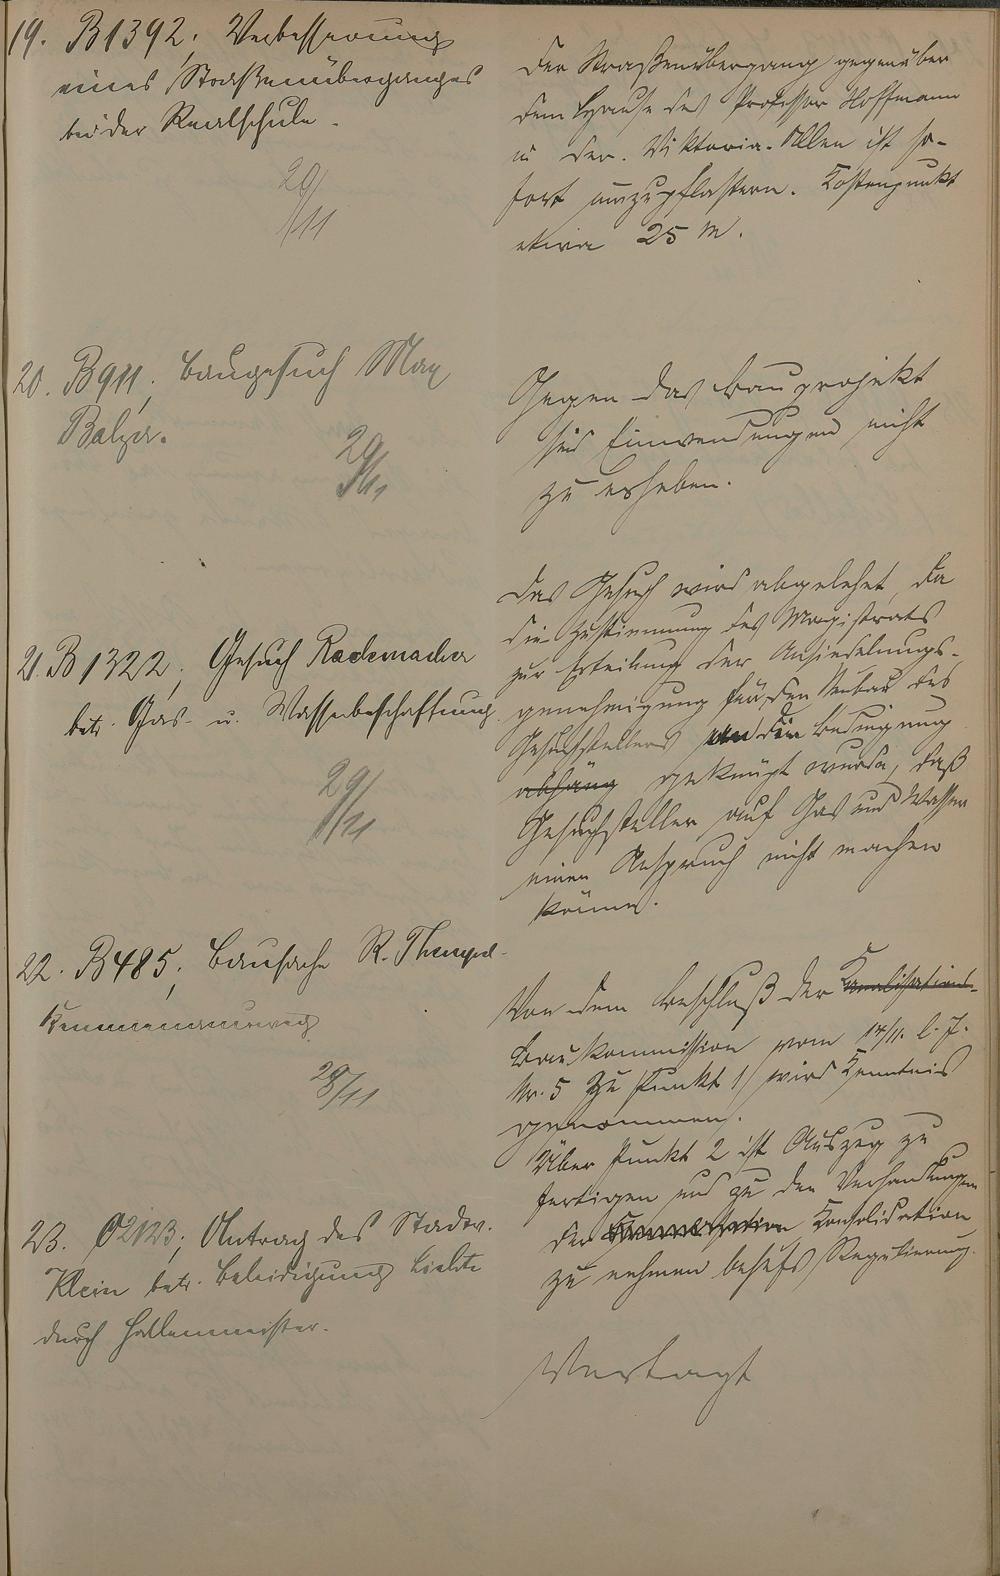 19. B1392; Verbesserung
eines Straßenüberganges
bei der Realschule.
29/11
Der Straßenübergang gegenüber
dem Hause des Professor Hoffmann
in der Viktoria-Allee ist so-
fort umzupflastern. Kostenpunkt
etwa 25 M.
20. B911; Baugesuch Max
Balzer.
29/11
Gegen das Bauprojekt
sind Einwendungen nicht
zu erheben.
21. B1322; Gesuch Rademacher
betr. Gas- u. Wasserbeschaffung
29/11
Das Gesuch wird abgelehnt, da
die Zustimmung des Magistrats
zur Erteilung der Ansiedelungs-
genehmigung für den Neubau des
Gesuchstellers an die Bedingung
abhäng geknüpft wurde, daß
Gesuchsteller auf Gas und Wasser
einen Anspruch nicht machen
könne.
22. B485; Bausache R. Thempel
29/11
Von dem Beschluß der Kanalisations-
Baukommission vom 14/11. l. J.
Nr. 5 Zu Punkt 1/ wird Kenntnis
genommen.
Über Punkt 2 ist Auszug zu
fertigen und zu den Verhandlungen
der Konsolidation
zu nehmen behufs Regulierung.
23. O2123; Antrag des Stadtv.
Klein betr. Beleidigung
durch Hallenmeister.
Vertagt